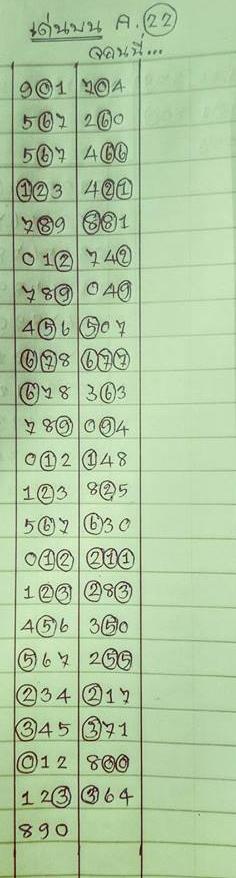 เด่นบน A. 22
901 704
567 260
567 466
123 421
789 881
012 742
789 049
456 507
678 677
678 363
789 094
012 148
123 825
567 630
012 211
123 283
456 350
567 255
234 217
345 371
012 800
123 364
890